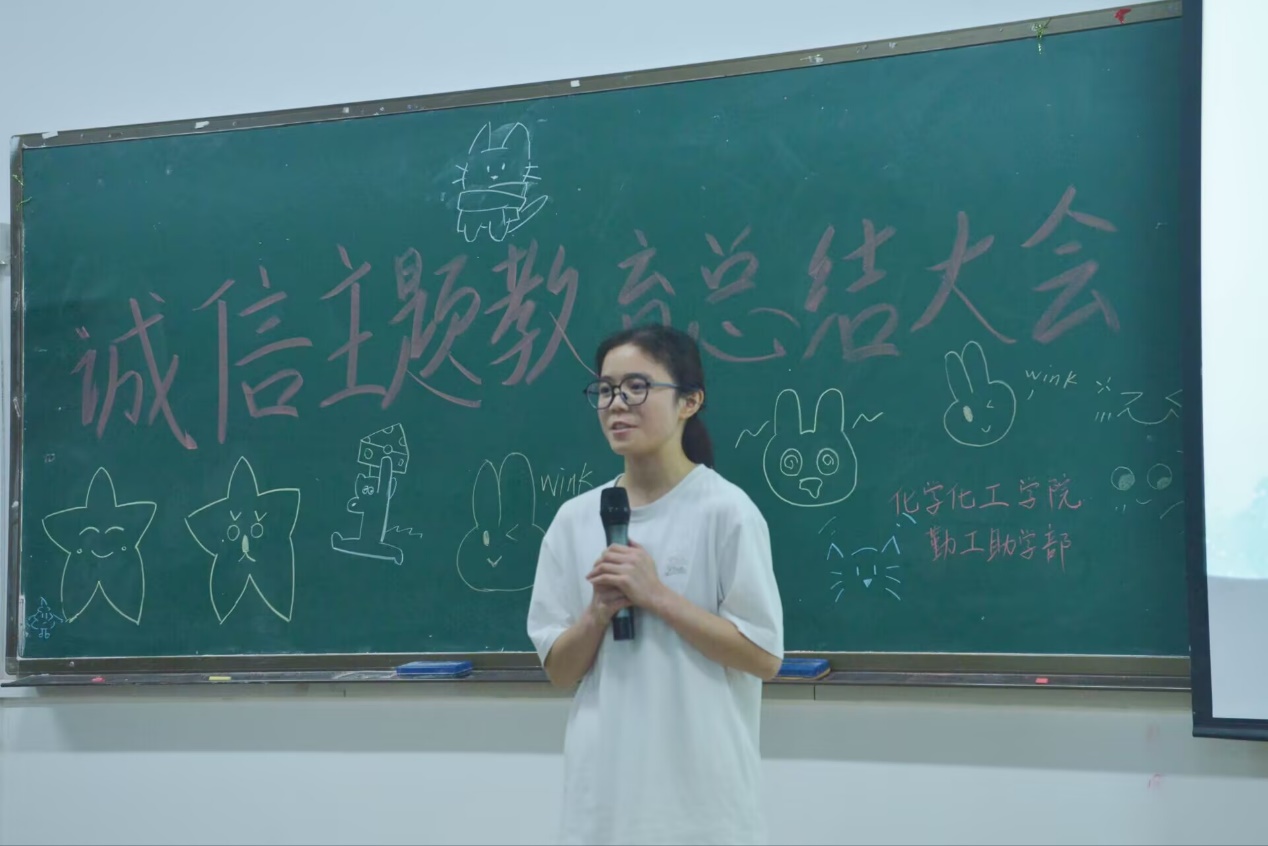 诚信主题教育总结大会
wink
wink
化学化工学院
勤工助学部